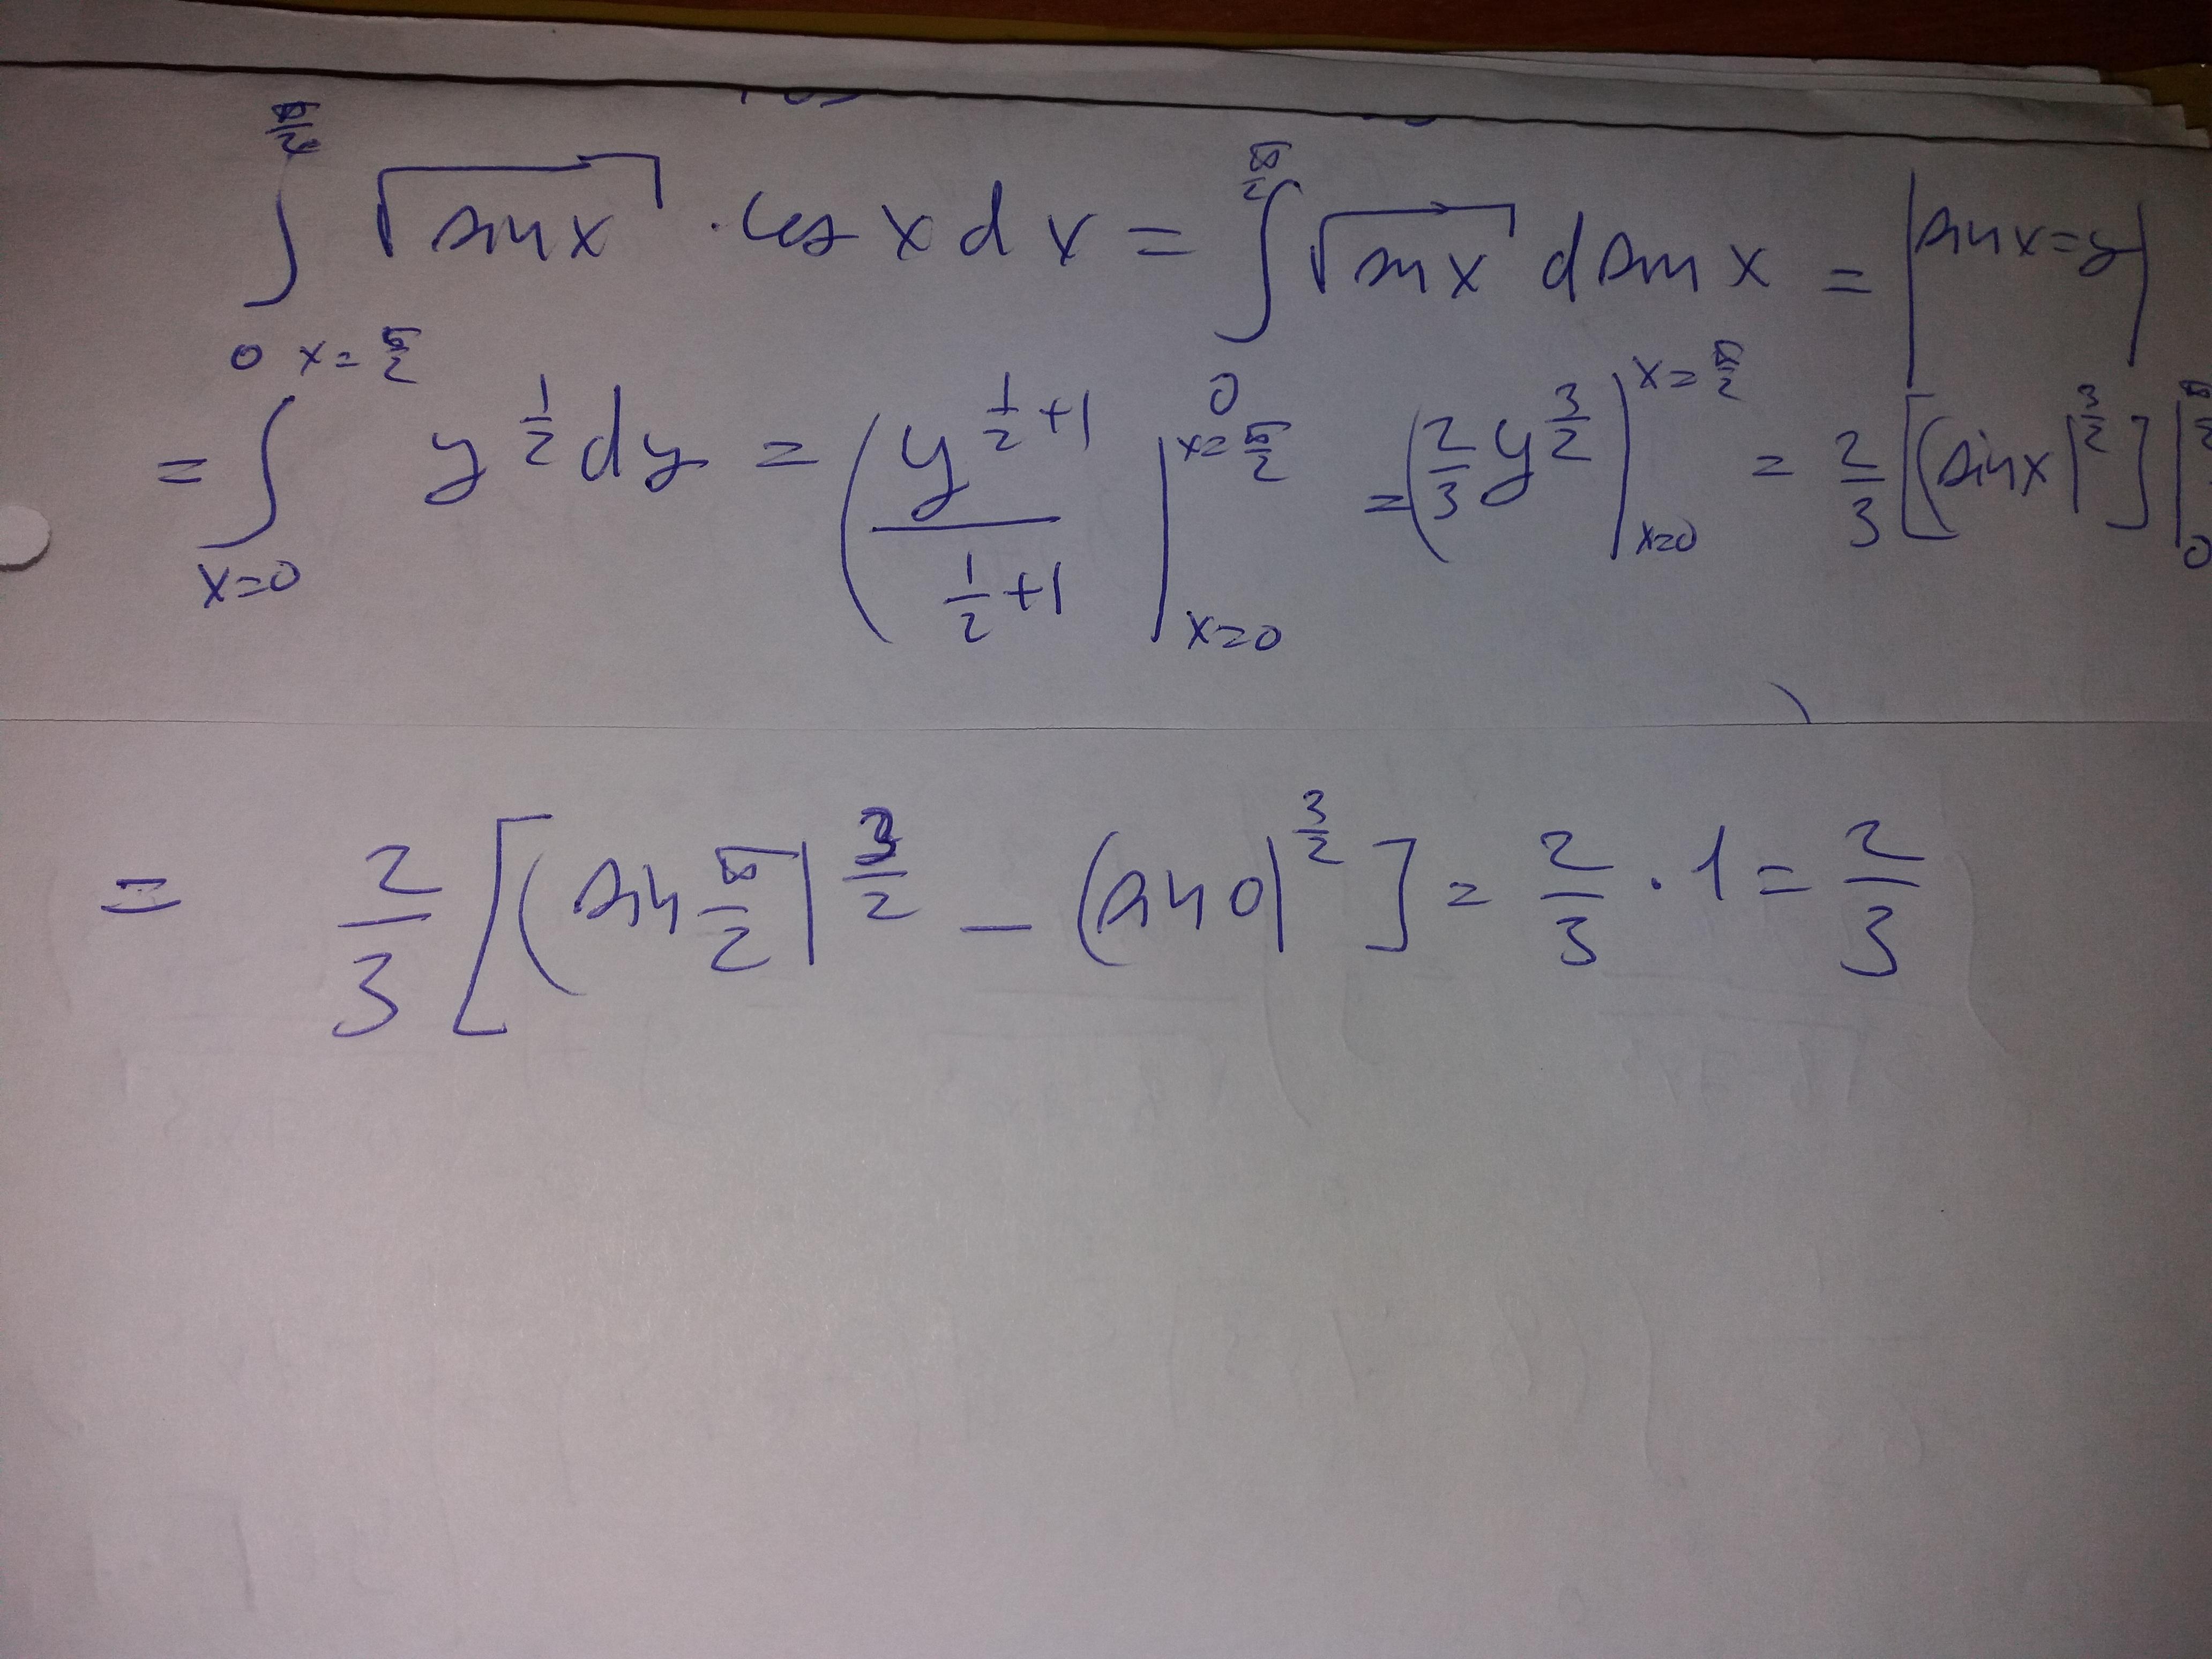 ∫₀^{π/2} √(sin x) · cos x dx = ∫₀^{π/2} √(sin x) d sin x = | sin x = y |
= ∫_{x=0}^{x=π/2} y^{1/2} dy = ( y^{1/2+1} / (1/2+1) |_{x=0}^{x=π/2} = ( 2/3 y^{3/2} |_{x=0}^{x=π/2} = 2/3 [(sin x)^{3/2}] |₀^{π/2}
= 2/3 [(sin π/2)^{3/2} − (sin 0)^{3/2}] = 2/3 · 1 = 2/3